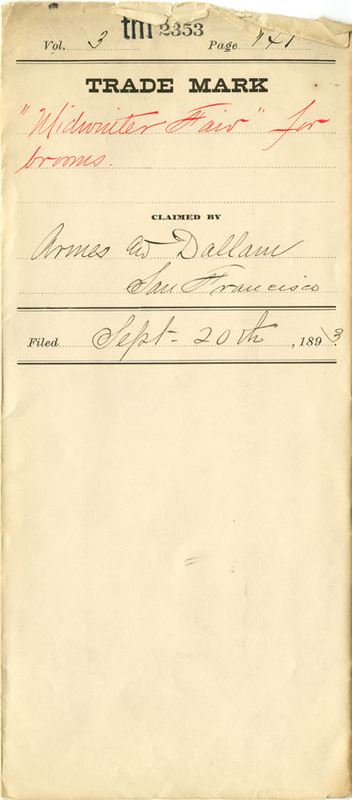 tm 2353
Vol. 3 Page 141
TRADE MARK
"Midwinter Fair" for
brooms.
CLAIMED BY
Armes & Dallam
San Francisco
Filed Sept. 20th, 1893.